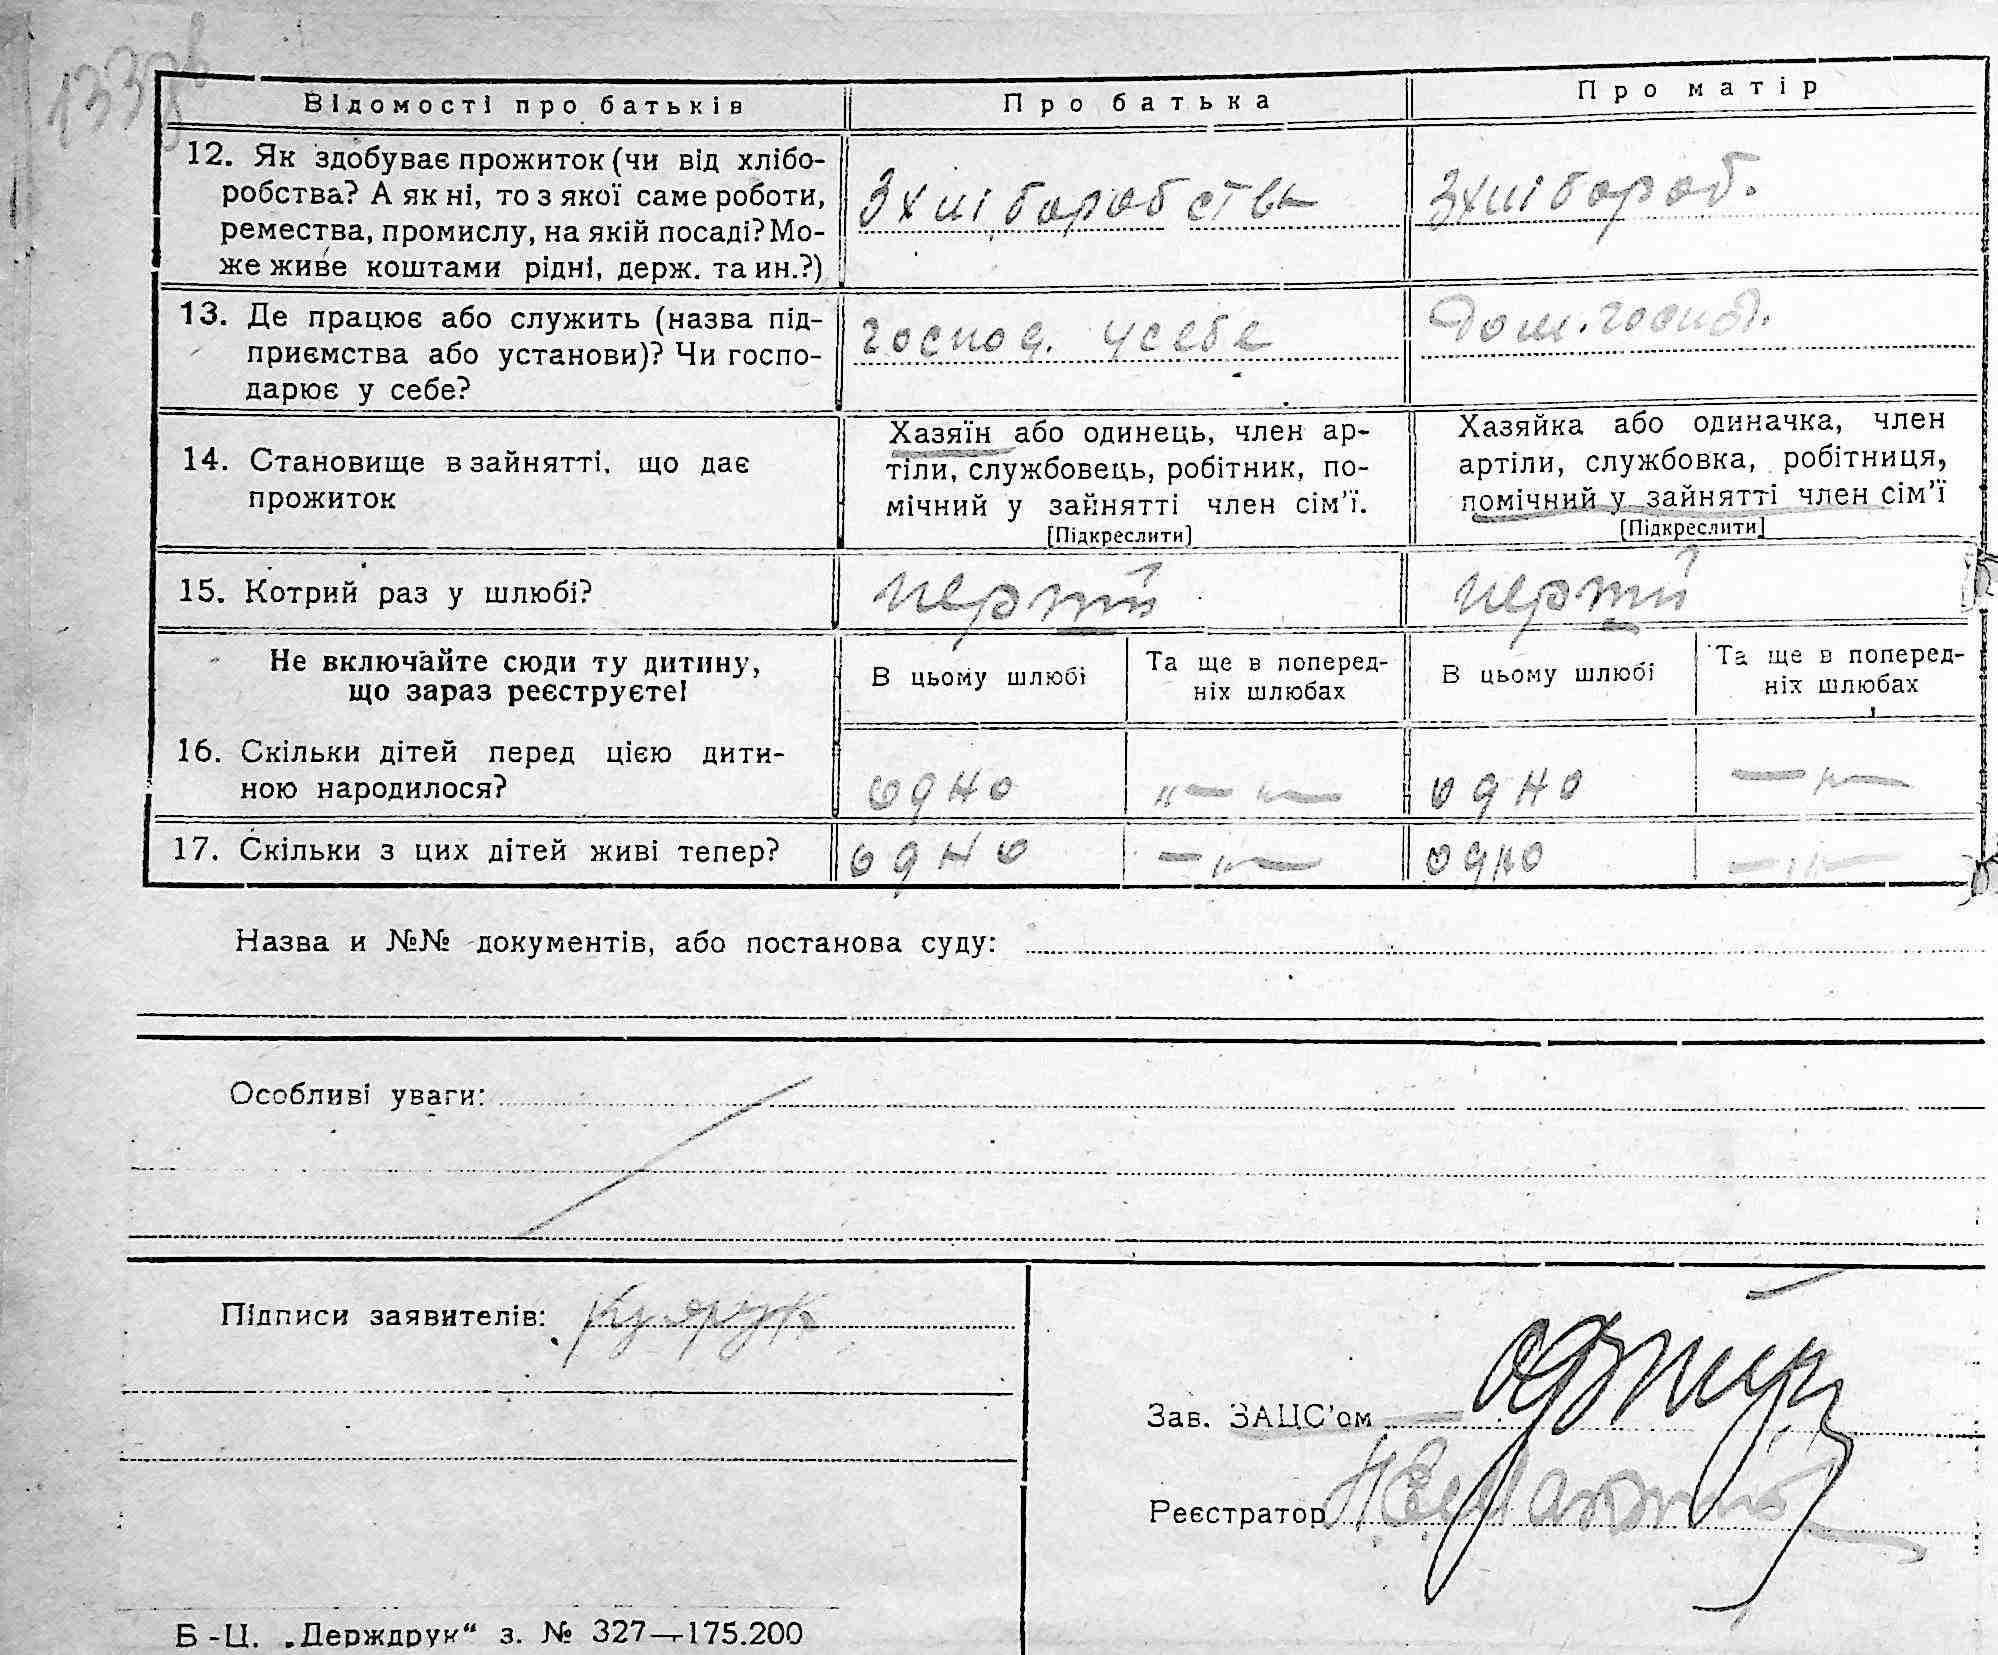 133
Відомості про батьків Про батька Про матір
12. Як здобуває прожиток (чи від хлібо-
робства? А як ні, то з якої саме роботи,
ремества, промислу, на якій посаді? Мо-
же живе коштами рідні, держ. та ин.?)
Зхлібаробства Зхлібороб.
13. Де працює або служить (назва під-
приємства або установи)? Чи госпо-
дарює у себе?
господ. у себе Дом. господ.
14. Становище в зайнятті, що дає
прожиток
Хазяїн або одинець, член ар-
тіли, службовець, робітник, по-
мічний у зайнятті член сім'ї.
[Підкреслити]
Хазяйка або одиначка, член
артіли, службовка, робітниця,
помічний у зайнятті член сім'ї
[Підкреслити]
15. Котрий раз у шлюбі? перший перший
Не включайте сюди ту дитину,
що зараз реєструєте!
В цьому шлюбі Та ще в поперед-
ніх шлюбах В цьому шлюбі Та ще в поперед-
ніх шлюбах
16. Скільки дітей перед цією дити-
ною народилося?
одно „ — „ — одно — „ —
17. Скільки з цих дітей живі тепер? одно — „ — одно — „ —
Назва и №№ документів, або постанова суду:
Особливі уваги:
Підписи заявителів:
Зав. ЗАЦС'ом
Реєстратор
Б-Ц. „Держдрук“ з. № 327—175.200